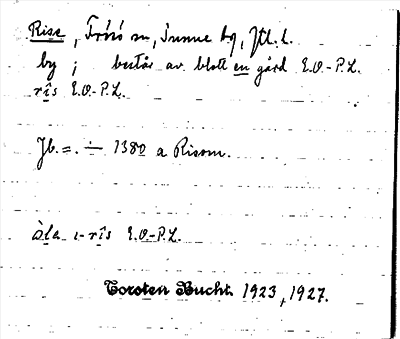 Rise, Frösö sn, Sunne tg, Jtl. l.
by; består av blott en gård E.O.-P.L.
rîs E.O.-P.L.
Jb. =. ∸ 1380 a Risom.
àla i-rîs E.O.-P.L.
Torsten Bucht. 1923, 1927.